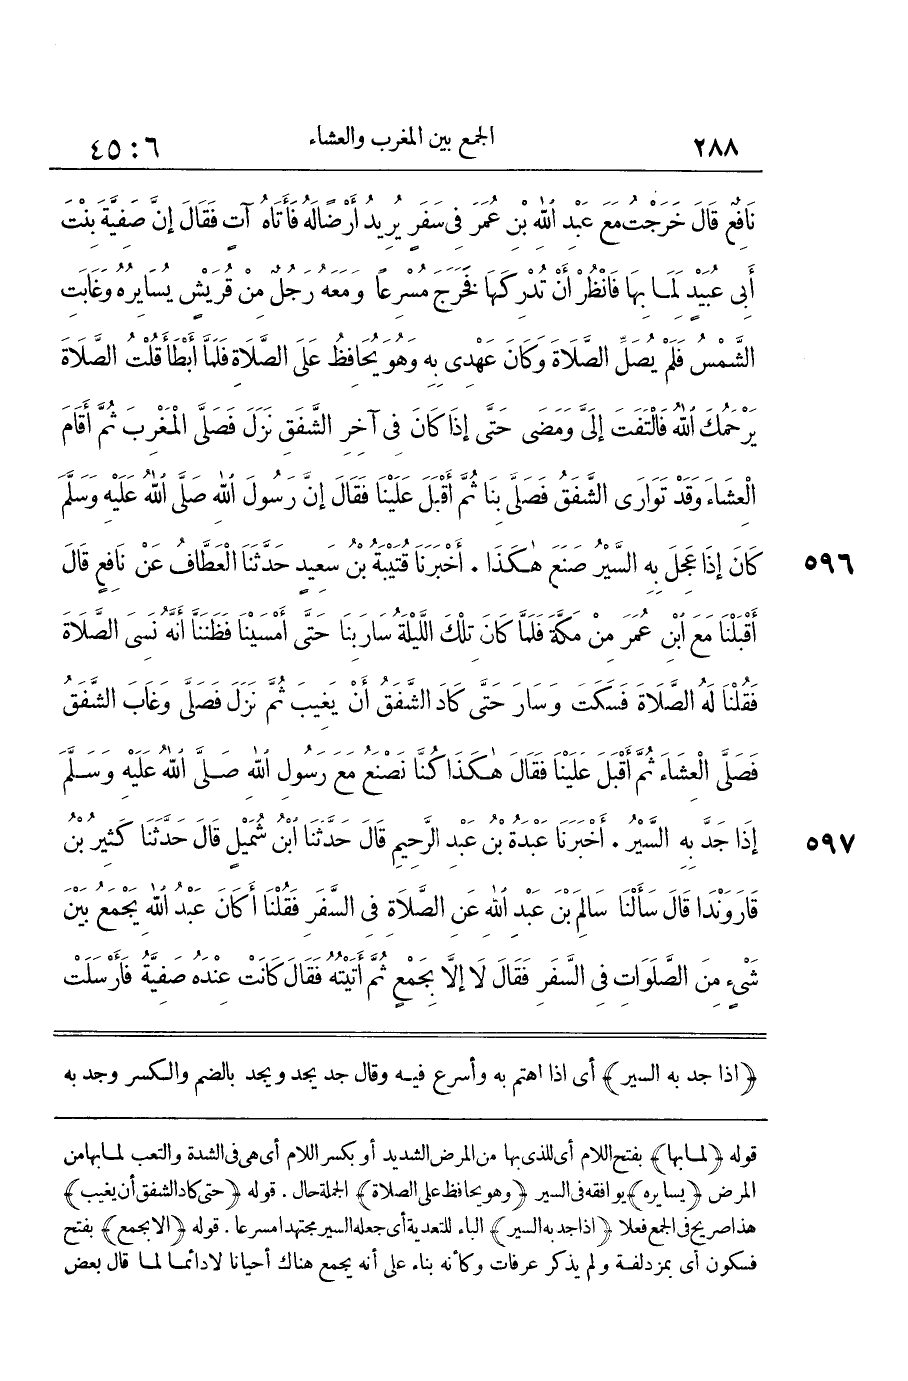 ٢٨٨ الجمع بين المغرب والعشاء ٦ : ٤٥
نَافِعٌ قَالَ خَرَجْتُ مَعَ عَبْدِ اللهِ بْنِ عُمَرَ فِى سَفَرٍ يُرِيدُ أَرْضًا لَهُ فَأَتَاهُ آتٍ فَقَالَ إِنَّ صَفِيَّةَ بِنْتَ
أَبِى عُبَيْدٍ لِمَا بِهَا فَانْظُرْ أَنْ تُدْرِكَهَا فَخَرَجَ مُسْرِعًا وَمَعَهُ رَجُلٌ مِنْ قُرَيْشٍ يُسَايِرُهُ وَغَابَتِ
الشَّمْسُ فَلَمْ يُصَلِّ الصَّلَاةَ وَكَانَ عَهْدِى بِهِ وَهُوَ يُحَافِظُ عَلَى الصَّلَاةِ فَلَمَّا أَبْطَأَ قُلْتُ الصَّلَاةَ
يَرْحَمُكَ اللهُ فَالْتَفَتَ إِلَىَّ وَمَضَى حَتَّى إِذَا كَانَ فِى آخِرِ الشَّفَقِ نَزَلَ فَصَلَّى الْمَغْرِبَ ثُمَّ أَقَامَ
الْعِشَاءَ وَقَدْ تَوَارَى الشَّفَقُ فَصَلَّى بِنَا ثُمَّ أَقْبَلَ عَلَيْنَا فَقَالَ إِنَّ رَسُولَ اللهِ صَلَّى اللهُ عَلَيْهِ وَسَلَّمَ
٥٩٦ كَانَ إِذَا عَجِلَ بِهِ السَّيْرُ صَنَعَ هٰكَذَا . أَخْبَرَنَا قُتَيْبَةُ بْنُ سَعِيدٍ حَدَّثَنَا الْعَطَّافُ عَنْ نَافِعٍ قَالَ
أَقْبَلْنَا مَعَ ابْنِ عُمَرَ مِنْ مَكَّةَ فَلَمَّا كَانَ تِلْكَ اللَّيْلَةُ سَارَ بِنَا حَتَّى أَمْسَيْنَا فَظَنَنَّا أَنَّهُ نَسِىَ الصَّلَاةَ
فَقُلْنَا لَهُ الصَّلَاةَ فَسَكَتَ وَسَارَ حَتَّى كَادَ الشَّفَقُ أَنْ يَغِيبَ ثُمَّ نَزَلَ فَصَلَّى وَغَابَ الشَّفَقُ
فَصَلَّى الْعِشَاءَ ثُمَّ أَقْبَلَ عَلَيْنَا فَقَالَ هٰكَذَا كُنَّا نَصْنَعُ مَعَ رَسُولِ اللهِ صَلَّى اللهُ عَلَيْهِ وَسَلَّمَ
٥٩٧ إِذَا جَدَّ بِهِ السَّيْرُ . أَخْبَرَنَا عَبْدَةُ بْنُ عَبْدِ الرَّحِيمِ قَالَ حَدَّثَنَا ابْنُ شُمَيْلٍ قَالَ حَدَّثَنَا كَثِيرُ بْنُ
قَارَوَنْدَا قَالَ سَأَلْنَا سَالِمَ بْنَ عَبْدِ اللهِ عَنِ الصَّلَاةِ فِى السَّفَرِ فَقُلْنَا أَكَانَ عَبْدُ اللهِ يَجْمَعُ بَيْنَ
شَىْءٍ مِنَ الصَّلَوَاتِ فِى السَّفَرِ فَقَالَ لَا إِلَّا بِجَمْعٍ ثُمَّ أَتَيْتُهُ فَقَالَ كَانَتْ عِنْدَهُ صَفِيَّةُ فَأَرْسَلَتْ
﴿اذا جد به السير﴾ أى اذا اهتم به وأسرع فيه وقال جد يجد ويجد بالضم والكسر وجد به
قوله ﴿لما بها﴾ بفتح اللام أى للذى بها من المرض الشديد أو بكسر اللام أى هى فى الشدة والتعب لما بها من
المرض ﴿يسايره﴾ يوافقه فى السير ﴿وهو يحافظ على الصلاة﴾ الجملة حال . قوله ﴿حتى كاد الشفق أن يغيب﴾
هذا صريح فى الجمع فعلا ﴿اذا جد به السير﴾ الباء للتعدية أى جعله السير مجتهدا مسرعا . قوله ﴿الا بجمع﴾ بفتح
فسكون أى بمزدلفة ولم يذكر عرفات وكأنه بناء على أنه يجمع هناك أحيانا لا دائما لما قال بعض